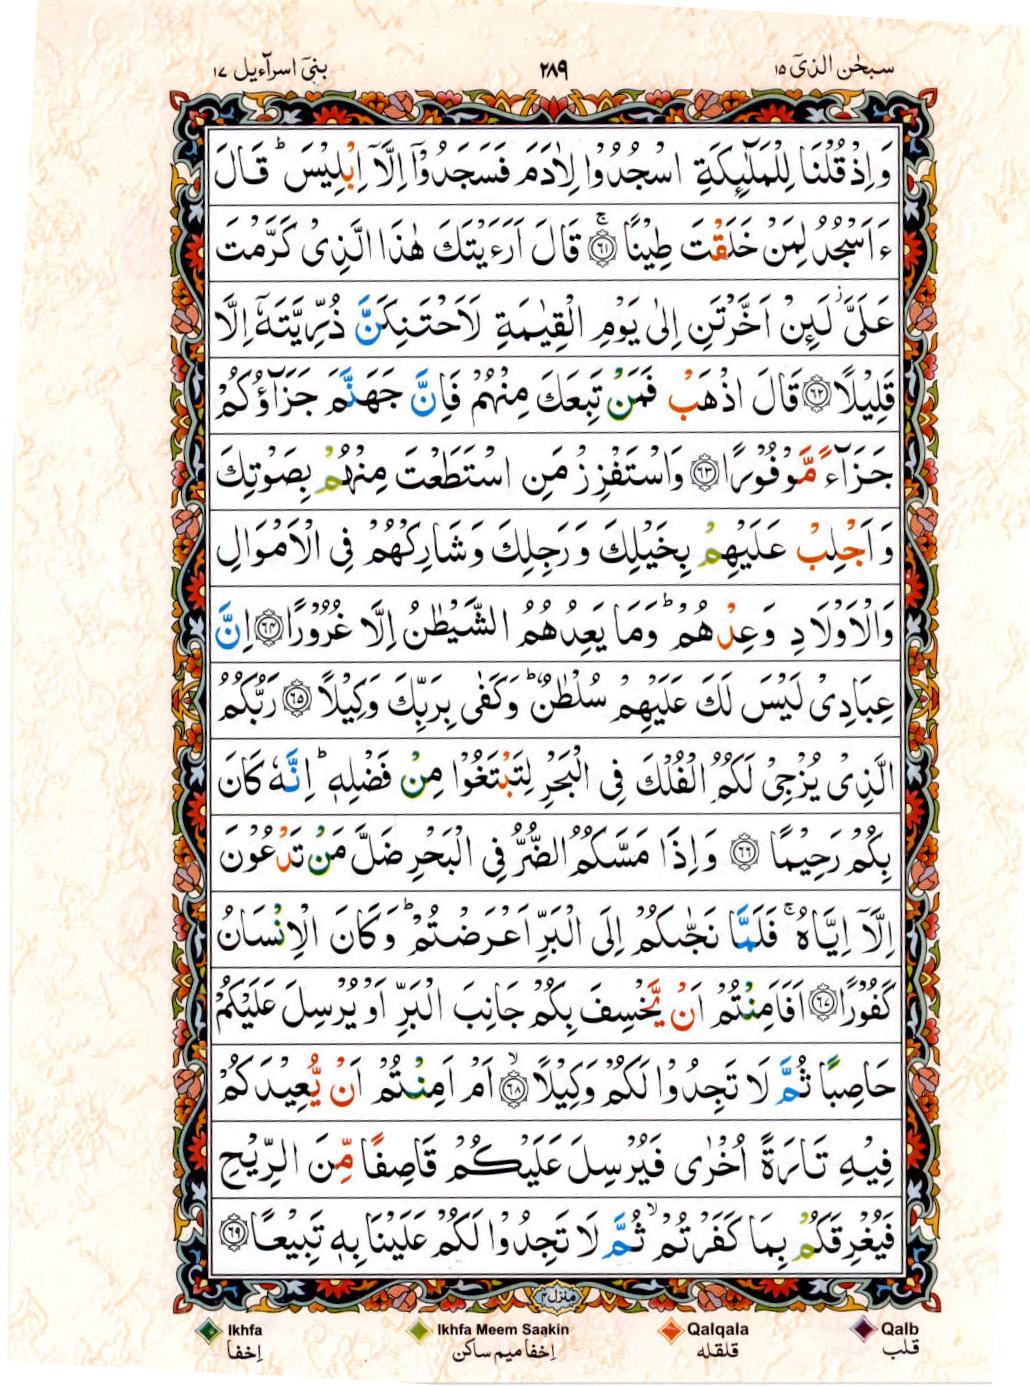 سبحٰن الذیٓ ۱۵ ۲۸۹ بنیٓ اسرآءیل ۱۷
وَاِذْ قُلْنَا لِلْمَلٰٓئِكَةِ اسْجُدُوْا لِاٰدَمَ فَسَجَدُوْۤا اِلَّاۤ اِبْلِيْسَ ؕ قَالَ
ءَاَسْجُدُ لِمَنْ خَلَقْتَ طِيْنًا ۚ‏﴿۶۱﴾ قَالَ اَرَءَيْتَكَ هٰذَا الَّذِىْ كَرَّمْتَ
عَلَىَّ ؗ لَئِنْ اَخَّرْتَنِ اِلٰى يَوْمِ الْقِيٰمَةِ لَاَحْتَنِكَنَّ ذُرِّيَّتَهٗۤ اِلَّا
قَلِيْلًا ﴿۶۲﴾ قَالَ اذْهَبْ فَمَنْ تَبِعَكَ مِنْهُمْ فَاِنَّ جَهَنَّمَ جَزَآؤُكُمْ
جَزَآءً مَّوْفُوْرًا ﴿۶۳﴾ وَاسْتَفْزِزْ مَنِ اسْتَطَعْتَ مِنْهُمْ بِصَوْتِكَ
وَاَجْلِبْ عَلَيْهِمْ بِخَيْلِكَ وَرَجِلِكَ وَشَارِكْهُمْ فِى الْاَمْوَالِ
وَالْاَوْلَادِ وَعِدْهُمْ ؕ وَمَا يَعِدُهُمُ الشَّيْطٰنُ اِلَّا غُرُوْرًا ﴿۶۴﴾ اِنَّ
عِبَادِىْ لَيْسَ لَكَ عَلَيْهِمْ سُلْطٰنٌ ؕ وَكَفٰى بِرَبِّكَ وَكِيْلًا ﴿۶۵﴾ رَبُّكُمُ
الَّذِىْ يُزْجِىْ لَكُمُ الْفُلْكَ فِى الْبَحْرِ لِتَبْتَغُوْا مِنْ فَضْلِهٖ ؕ اِنَّهٗ كَانَ
بِكُمْ رَحِيْمًا ﴿۶۶﴾ وَاِذَا مَسَّكُمُ الضُّرُّ فِى الْبَحْرِ ضَلَّ مَنْ تَدْعُوْنَ
اِلَّاۤ اِيَّاهُ ۚ فَلَمَّا نَجّٰىكُمْ اِلَى الْبَرِّ اَعْرَضْتُمْ ؕ وَكَانَ الْاِنْسَانُ
كَفُوْرًا ﴿۶۷﴾ اَفَاَمِنْتُمْ اَنْ يَّخْسِفَ بِكُمْ جَانِبَ الْبَرِّ اَوْ يُرْسِلَ عَلَيْكُمْ
حَاصِبًا ثُمَّ لَا تَجِدُوْا لَكُمْ وَكِيْلًا ۙ‏﴿۶۸﴾ اَمْ اَمِنْتُمْ اَنْ يُّعِيْدَكُمْ
فِيْهِ تَارَةً اُخْرٰى فَيُرْسِلَ عَلَيْكُمْ قَاصِفًا مِّنَ الرِّيْحِ
فَيُغْرِقَكُمْ بِمَا كَفَرْتُمْ ۙ ثُمَّ لَا تَجِدُوْا لَكُمْ عَلَيْنَا بِهٖ تَبِيْعًا ﴿۶۹﴾
منزل ۴
Ikhfa Ikhfa Meem Saakin Qalqala Qalb
اِخفا اِخفا میم ساکن قلقله قلب